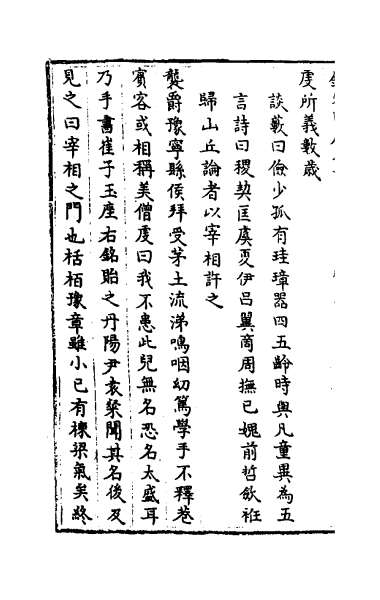 虔所義數歳
談藪曰儉少孤有珪璋器四五齡時與凡童異為五
言詩曰稷契匡虞夏伊吕翼商周撫已媿前哲斂袵
歸山丘論者以宰相許之
襲爵豫寧縣侯拜受茅土流涕嗚咽幼篤學手不釋卷
賓客或相稱美僧虔曰我不患此兒無名恐名太盛耳
乃手書崔子玉座右銘貽之丹陽尹袁粲聞其名後及
見之曰宰相之門也栝栢豫章雖小已有棟梁氣矣終